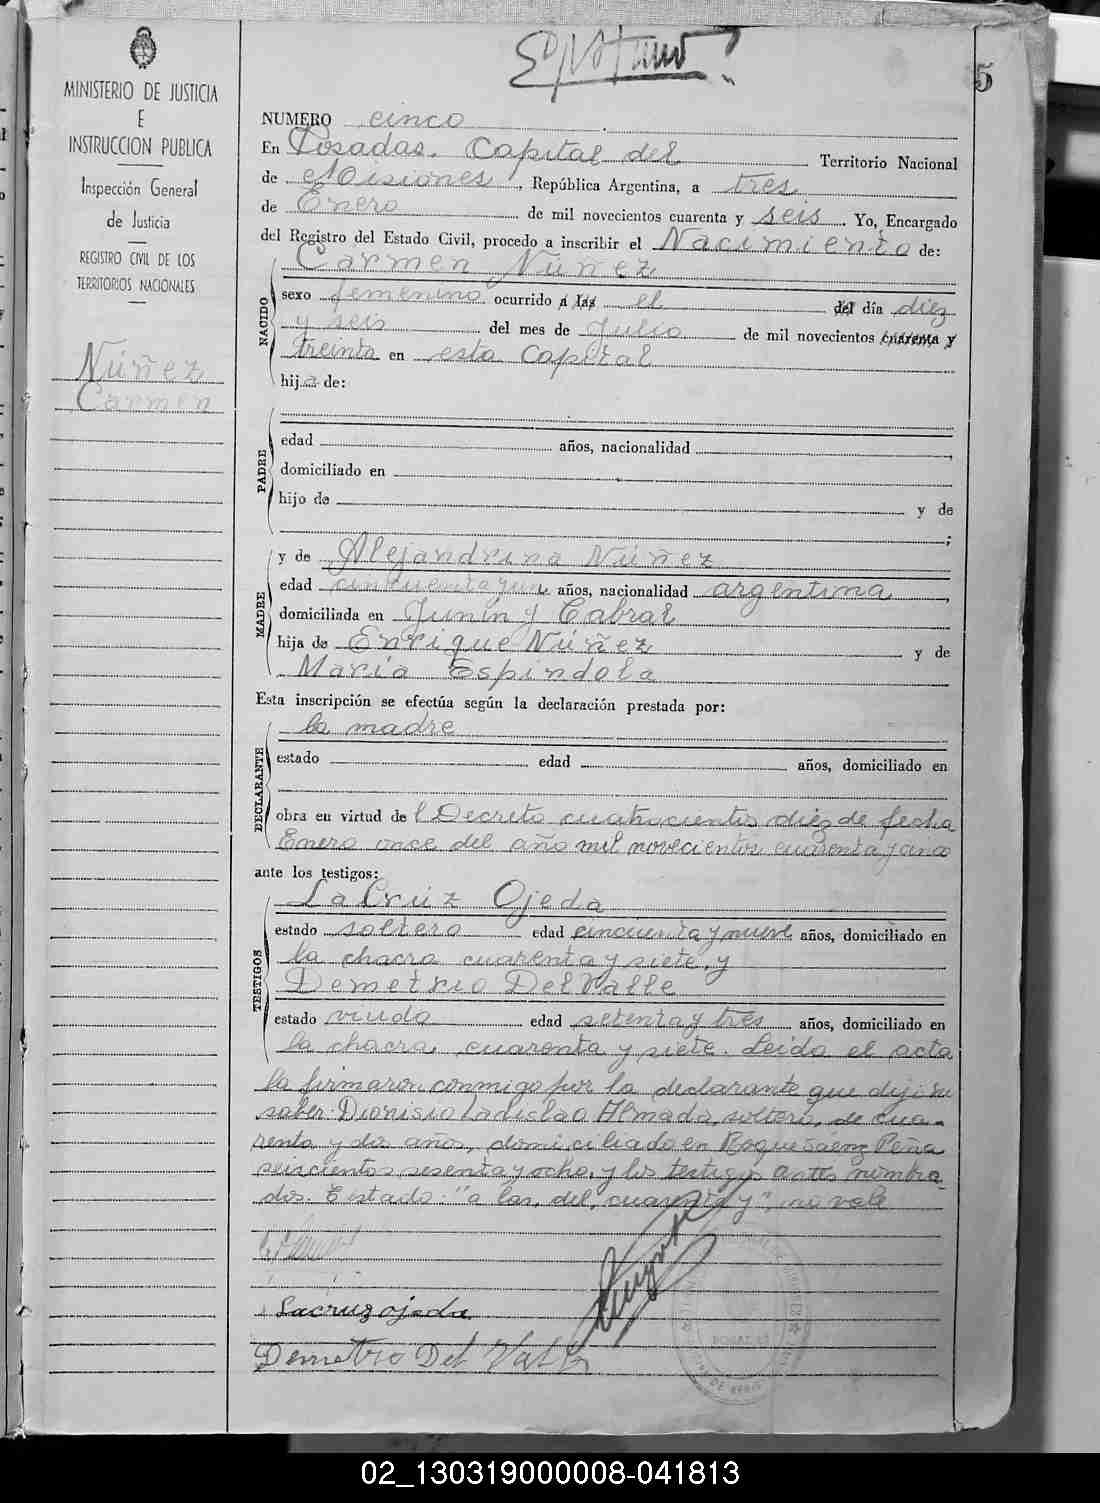 5
MINISTERIO DE JUSTICIA
E
INSTRUCCION PUBLICA
Inspección General
de Justicia
REGISTRO CIVIL DE LOS
TERRITORIOS NACIONALES
Núñez
Carmen
NUMERO cinco
En Posadas, Capital del Territorio Nacional
de Misiones, República Argentina, a tres
de Enero de mil novecientos cuarenta y seis. Yo, Encargado
del Registro del Estado Civil, procedo a inscribir el Nacimiento de:
Carmen Núñez
NACIDO
sexo femenino ocurrido a las el del día diez
y seis del mes de Julio de mil novecientos cuarenta y
treinta en esta Capital
hija de:
PADRE
edad años, nacionalidad
domiciliado en
hijo de y de
;
MADRE
y de Alejandrina Núñez
edad cincuenta y un años, nacionalidad argentina
domiciliada en Junín y Cabral
hija de Enrique Núñez y de
María Espíndola
Esta inscripción se efectúa según la declaración prestada por:
la madre
DECLARANTE
estado edad años, domiciliado en
obra en virtud del Decreto cuatrocientos diez de fecha
Enero once del año mil novecientos cuarenta y cinco
ante los testigos:
LaCruz Ojeda
TESTIGOS
estado soltero edad cincuenta y nueve años, domiciliado en
la chacra cuarenta y siete, y
Demetrio Del Valle
estado viudo edad setenta y tres años, domiciliado en
la chacra cuarenta y siete. Leida el acta
la firmaron conmigo por la declarante que dijo no
saber Dionisio Ladislao Almada, soltero, de cua-
renta y dos años, domiciliado en Roque Saenz Peña
seiscientos sesenta y ocho, y los testigos antes nombra-
dos. Estado: "a las, del, cuarenta y", no vale
Lacruz ojeda
Demetrio Del Valle
POSADAS
02_130319000008-041813